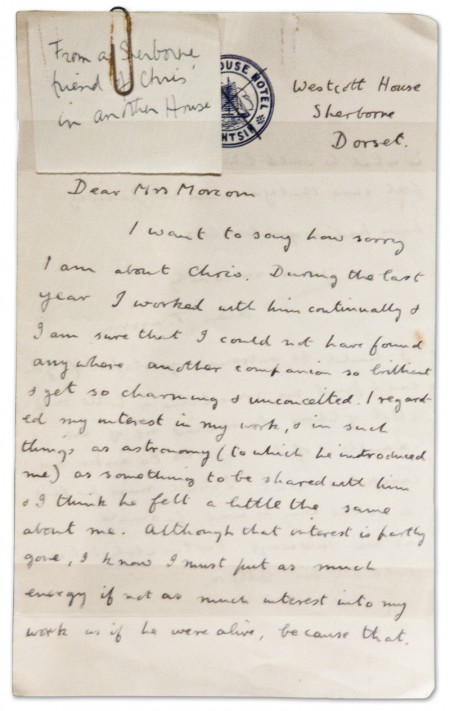 From a Sherborne
friend of Chris'
in another House
HOUSE HOTEL
Westcott House
Sherborne
Dorset.
Dear Mrs Morcom
I want to say how sorry
I am about Chris. During the last
year I worked with him continually &
I am sure that I could not have found
anywhere another companion so brilliant
& yet so charming & unconceited. I regard-
ed my interest in my work, & in such
things as astronomy (to which he introduced
me) as something to be shared with him
& I think he felt a little the same
about me. Although that interest is partly
gone, I know I must put as much
energy if not as much interest into my
work as if he were alive, because that